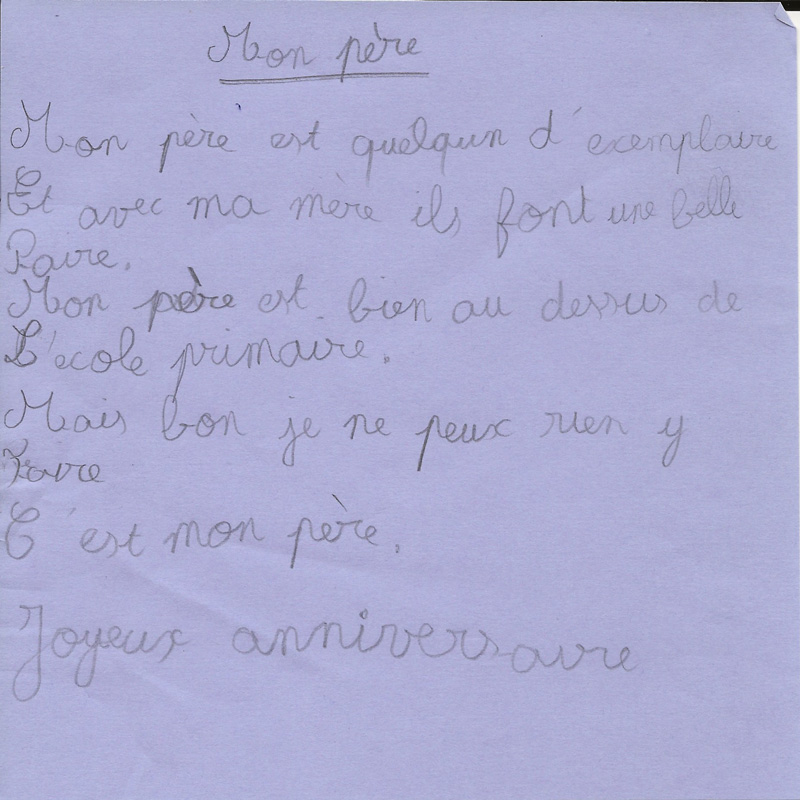 Mon père
Mon père est quelqun d'exemplaire
Et avec ma mère ils font une belle
Paire.
Mon père est bien au dessus de
L'école primaire.
Mais bon je ne peux rien y
Faire
C'est mon père.
Joyeux anniversaire